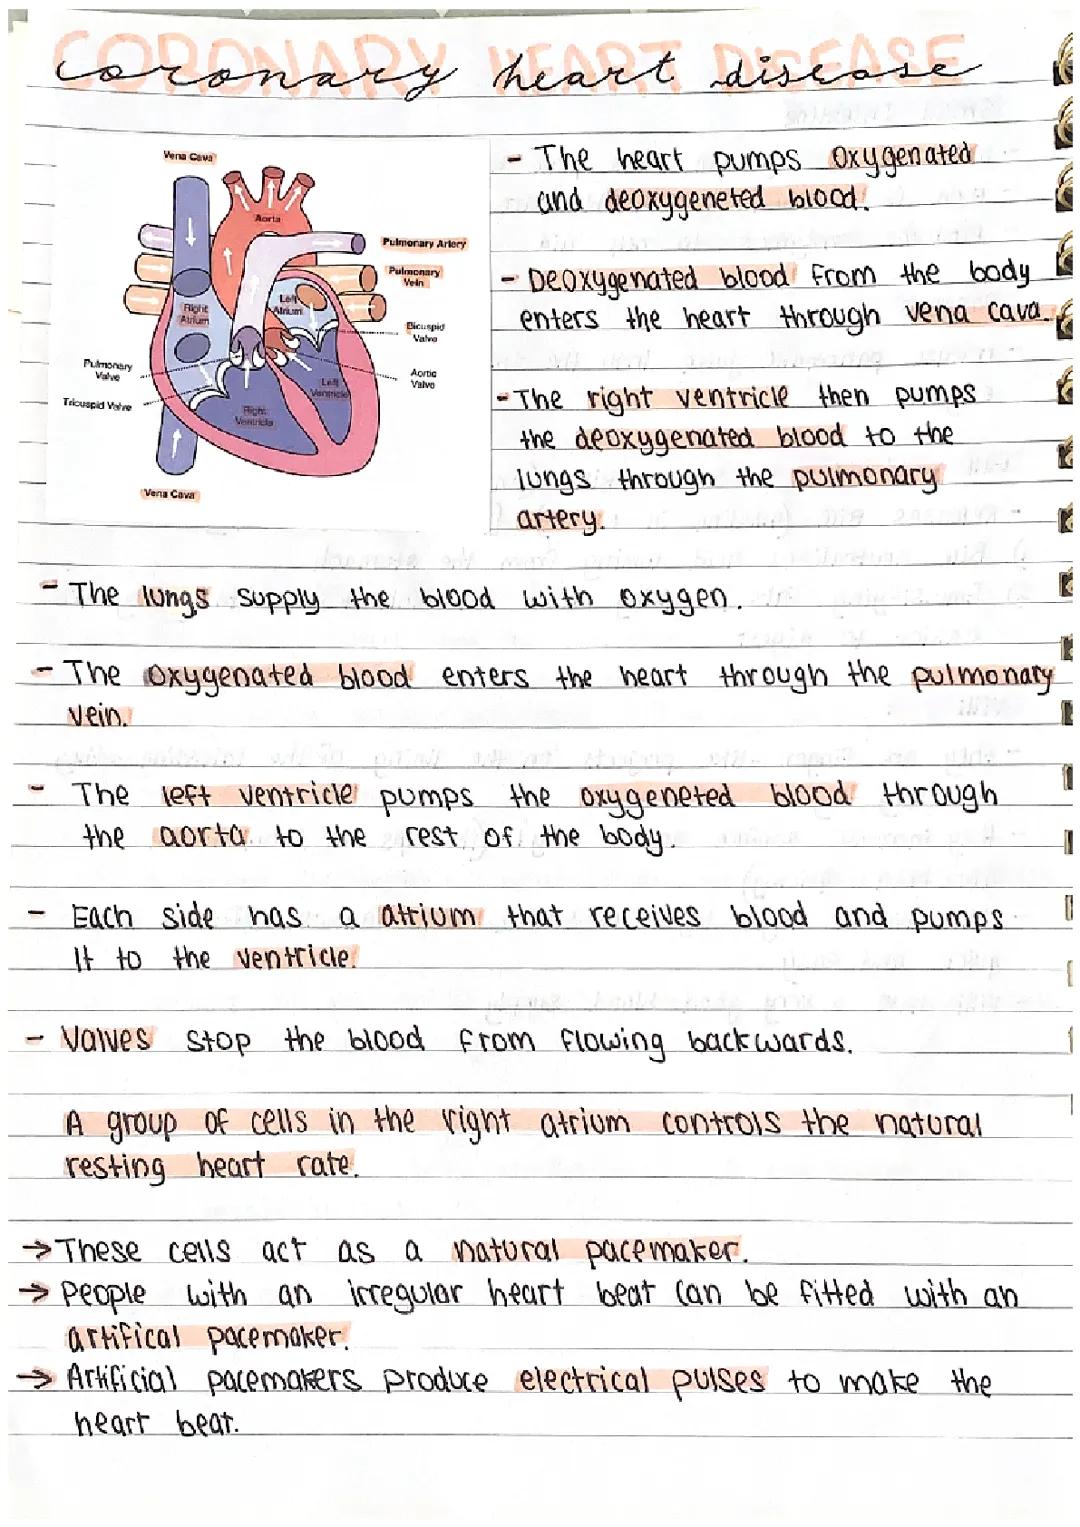 CORONARY HEART DISEASE
coronary heart disease
Vena Cava
Aorta
Pulmonary Artery
Pulmonary
Vein
Left
Atrium
Right
Atrium
Bicuspid
Valve
Pulmonary
Valve
Aortic
Valve
Left
Ventricle
Tricuspid Valve
Right
Ventricle
Vena Cava
- The heart pumps oxygenated
and deoxygeneted blood.
- Deoxygenated blood from the body
enters the heart through vena cava.
- The right ventricle then pumps
the deoxygenated blood to the
lungs through the pulmonary
artery.
- The lungs supply the blood with oxygen.
- The oxygenated blood enters the heart through the pulmonary
vein.
- The left ventricle pumps the oxygeneted blood through
the aorta to the rest of the body.
- Each side has a atrium that receives blood and pumps
it to the ventricle.
- Valves stop the blood from flowing backwards.
A group of cells in the right atrium controls the natural
resting heart rate.
→ These cells act as a natural pacemaker.
→ People with an irregular heart beat can be fitted with an
artifical pacemaker.
→ Artificial pacemakers produce electrical pulses to make the
heart beat.